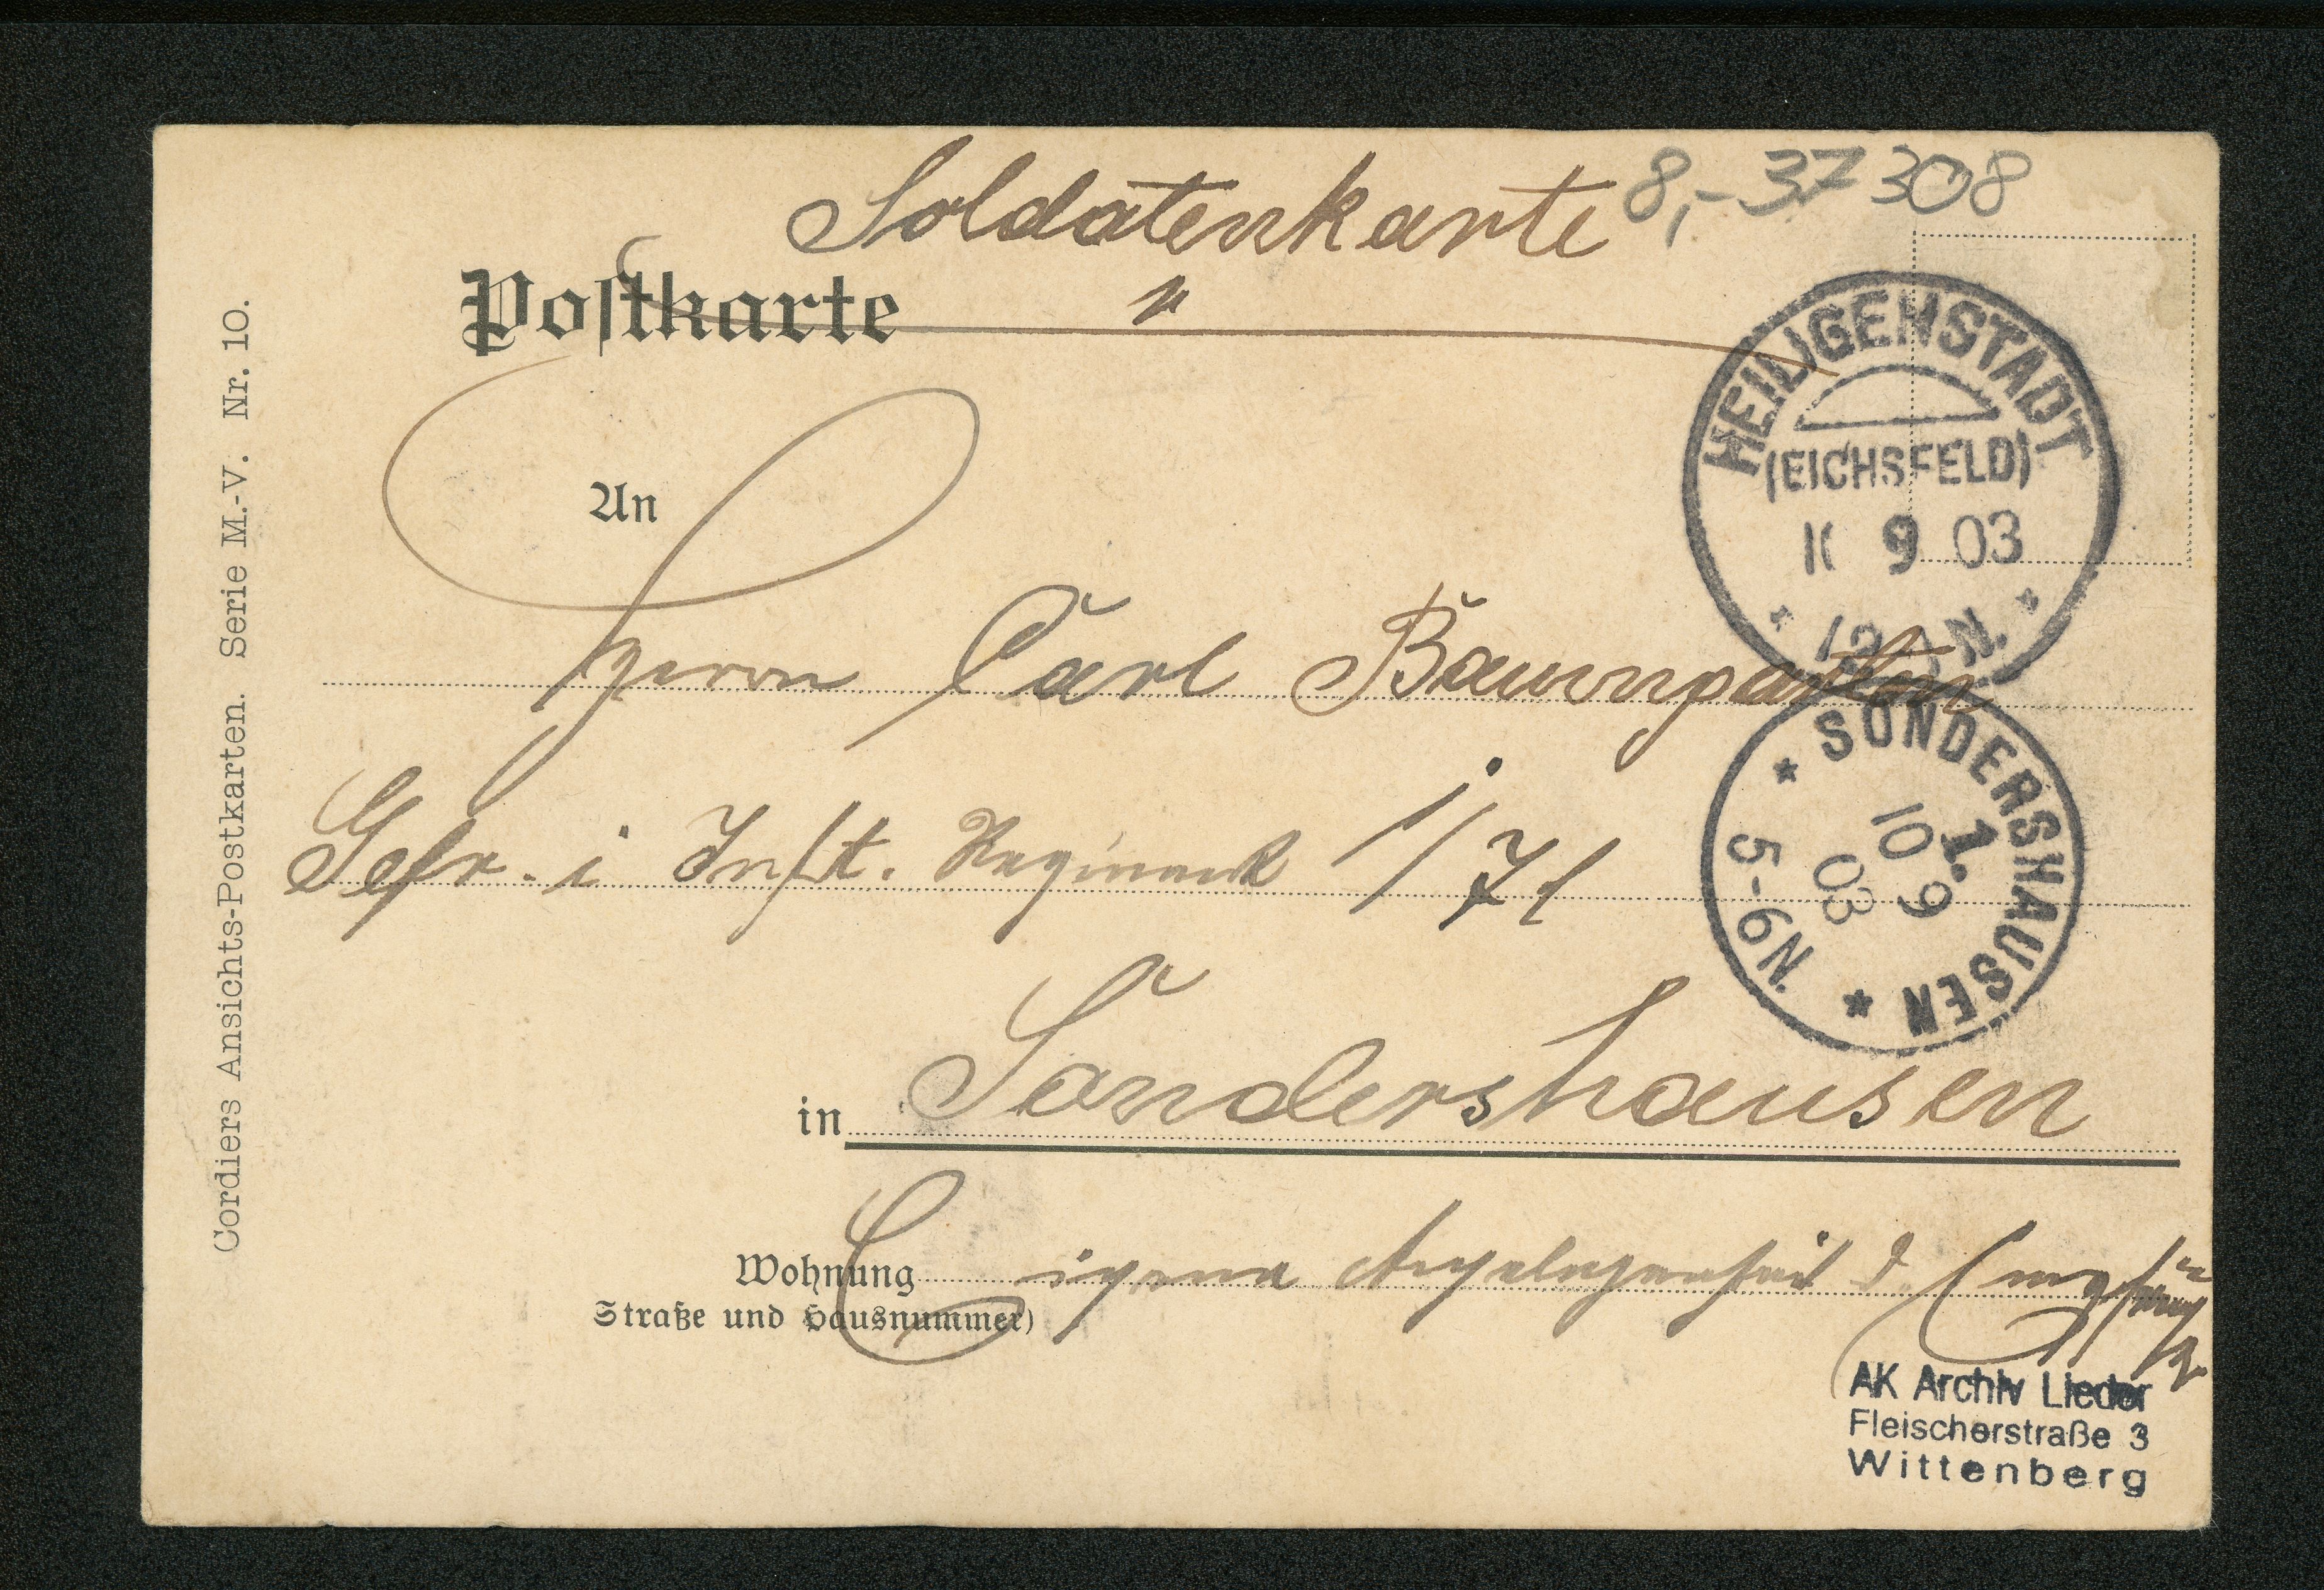 Soldatenkarte
8,- 37 308
Postkarte
An
Herrn Carl Baumgarten
Gefr. i Inft. Regiment 1/71
in Sondershausen
Wohnung
(Straße und Hausnummer)
Eigene Angelegenheit d. Empfängers
Cordiers Ansichts-Postkarten. Serie M.-V. Nr. 10.
HEILIGENSTADT
(EICHSFELD)
9 03
SONDERSHAUSEN
1.
10 9
03
5-6N.
AK Archiv Lieder
Fleischerstraße 3
Wittenberg